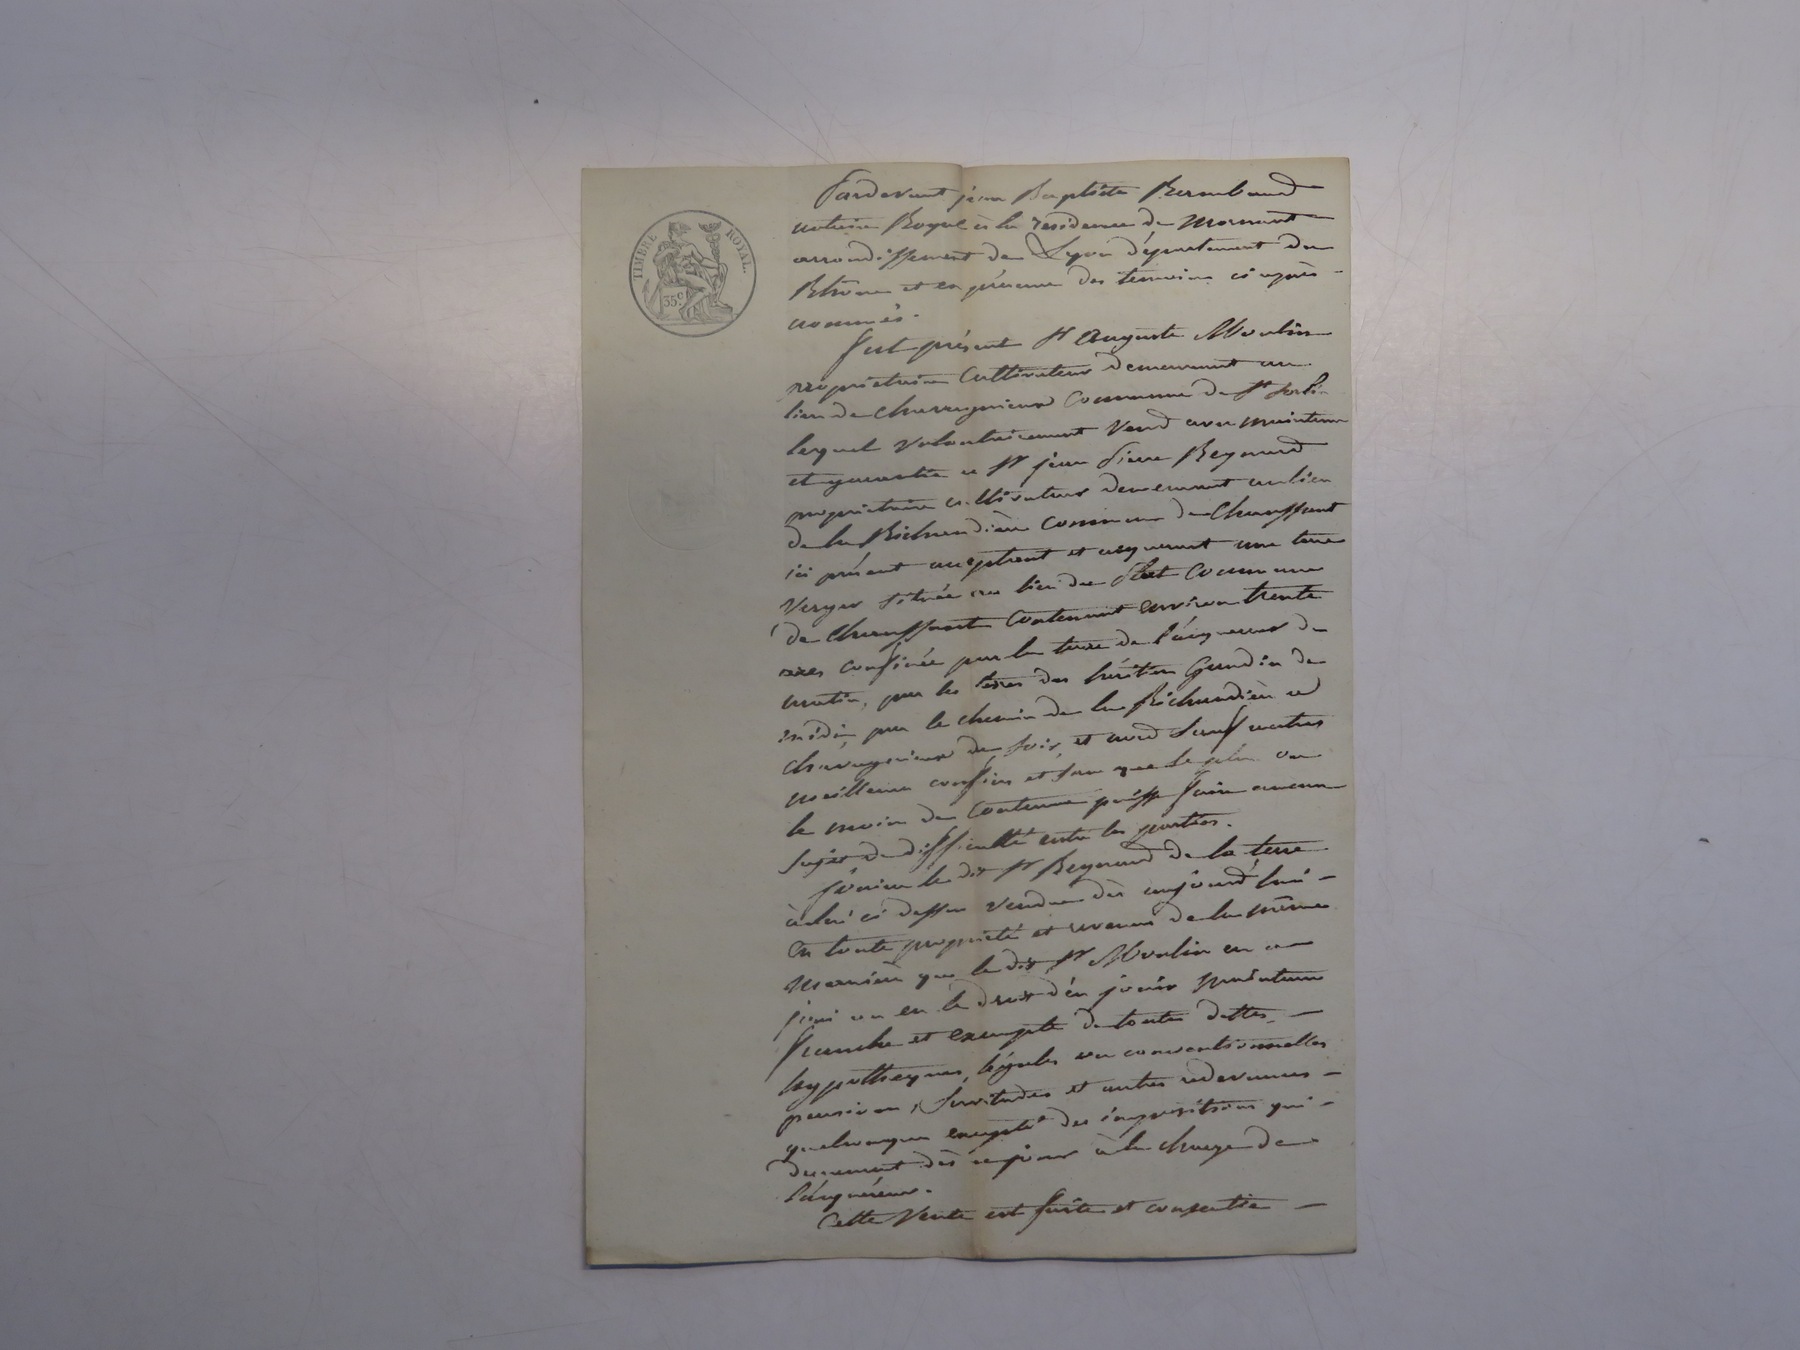 TIMBRE ROYAL.
35c.
Pardevant jean Baptiste
notaire Royal à la résidence de Mornant
arrondissement de Lyon département du
Rhône et en présence des temoins ci après
nommés.
fut présent Sr Auguste Moulin
propriétaire Cultivateur demeurant au
lieu de Chavagnieux Commune de St Sorlin
lequel Volontairement Vend avec maintenue
et garantie a Sr jean Piere Reynard
propriétaire cultivateur demeurant au lieu
de la Richaudière commune de Chaussant
ici présent acceptant et acquerant une terre
Verger située au lieu du Plat Commune
de Chaussant Contenant environ trente
ares confinée par la terre de l'acquereur de
matin, par les terres des héritiers Gaudin de
midi, par le chemin de la Richaudière a
Chavagnieux de soir, et nord Sauf autres
meilleurs confins et sans que le plus ou
le moin de Contenue puisse faire aucun
sujet de difficulté entre les parties.
jouira le dit Sr Reynard de la terre
à lui ci dessus Vendue dès aujourd'hui
en toute propriété et revenus de la même
manière que le dit Sr Moulin en a
joui ou eu le droit d'en jouir maintenue
franche et exempte de toutes dettes
hypotheques, légales ou conventionnelles
pension, Servitudes et autres redevances
quelconques excepté des impositions qui
demeurent dès ce jour à la charge de
l'acquéreur.
Cette Vente est faite et consentie